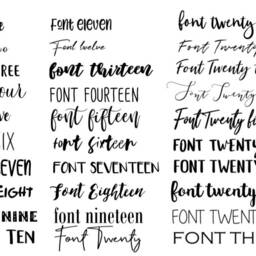 wo
REE
our
ve
IX
EVEN
EIGHT
NINE
TEN
font eleven
Font twelve
font thirteen
FONT FOURTEEN
font fifteen
font Sixteen
FONT SEVENTEEN
Font Eighteen
font nineteen
Font Twenty
font twenty
Font Twenty
Font Twenty
Font Twenty
Font Twenty fi
FONT TWENTY
FONT TWENTY
font twenty
FONT TWENT
FONT TH